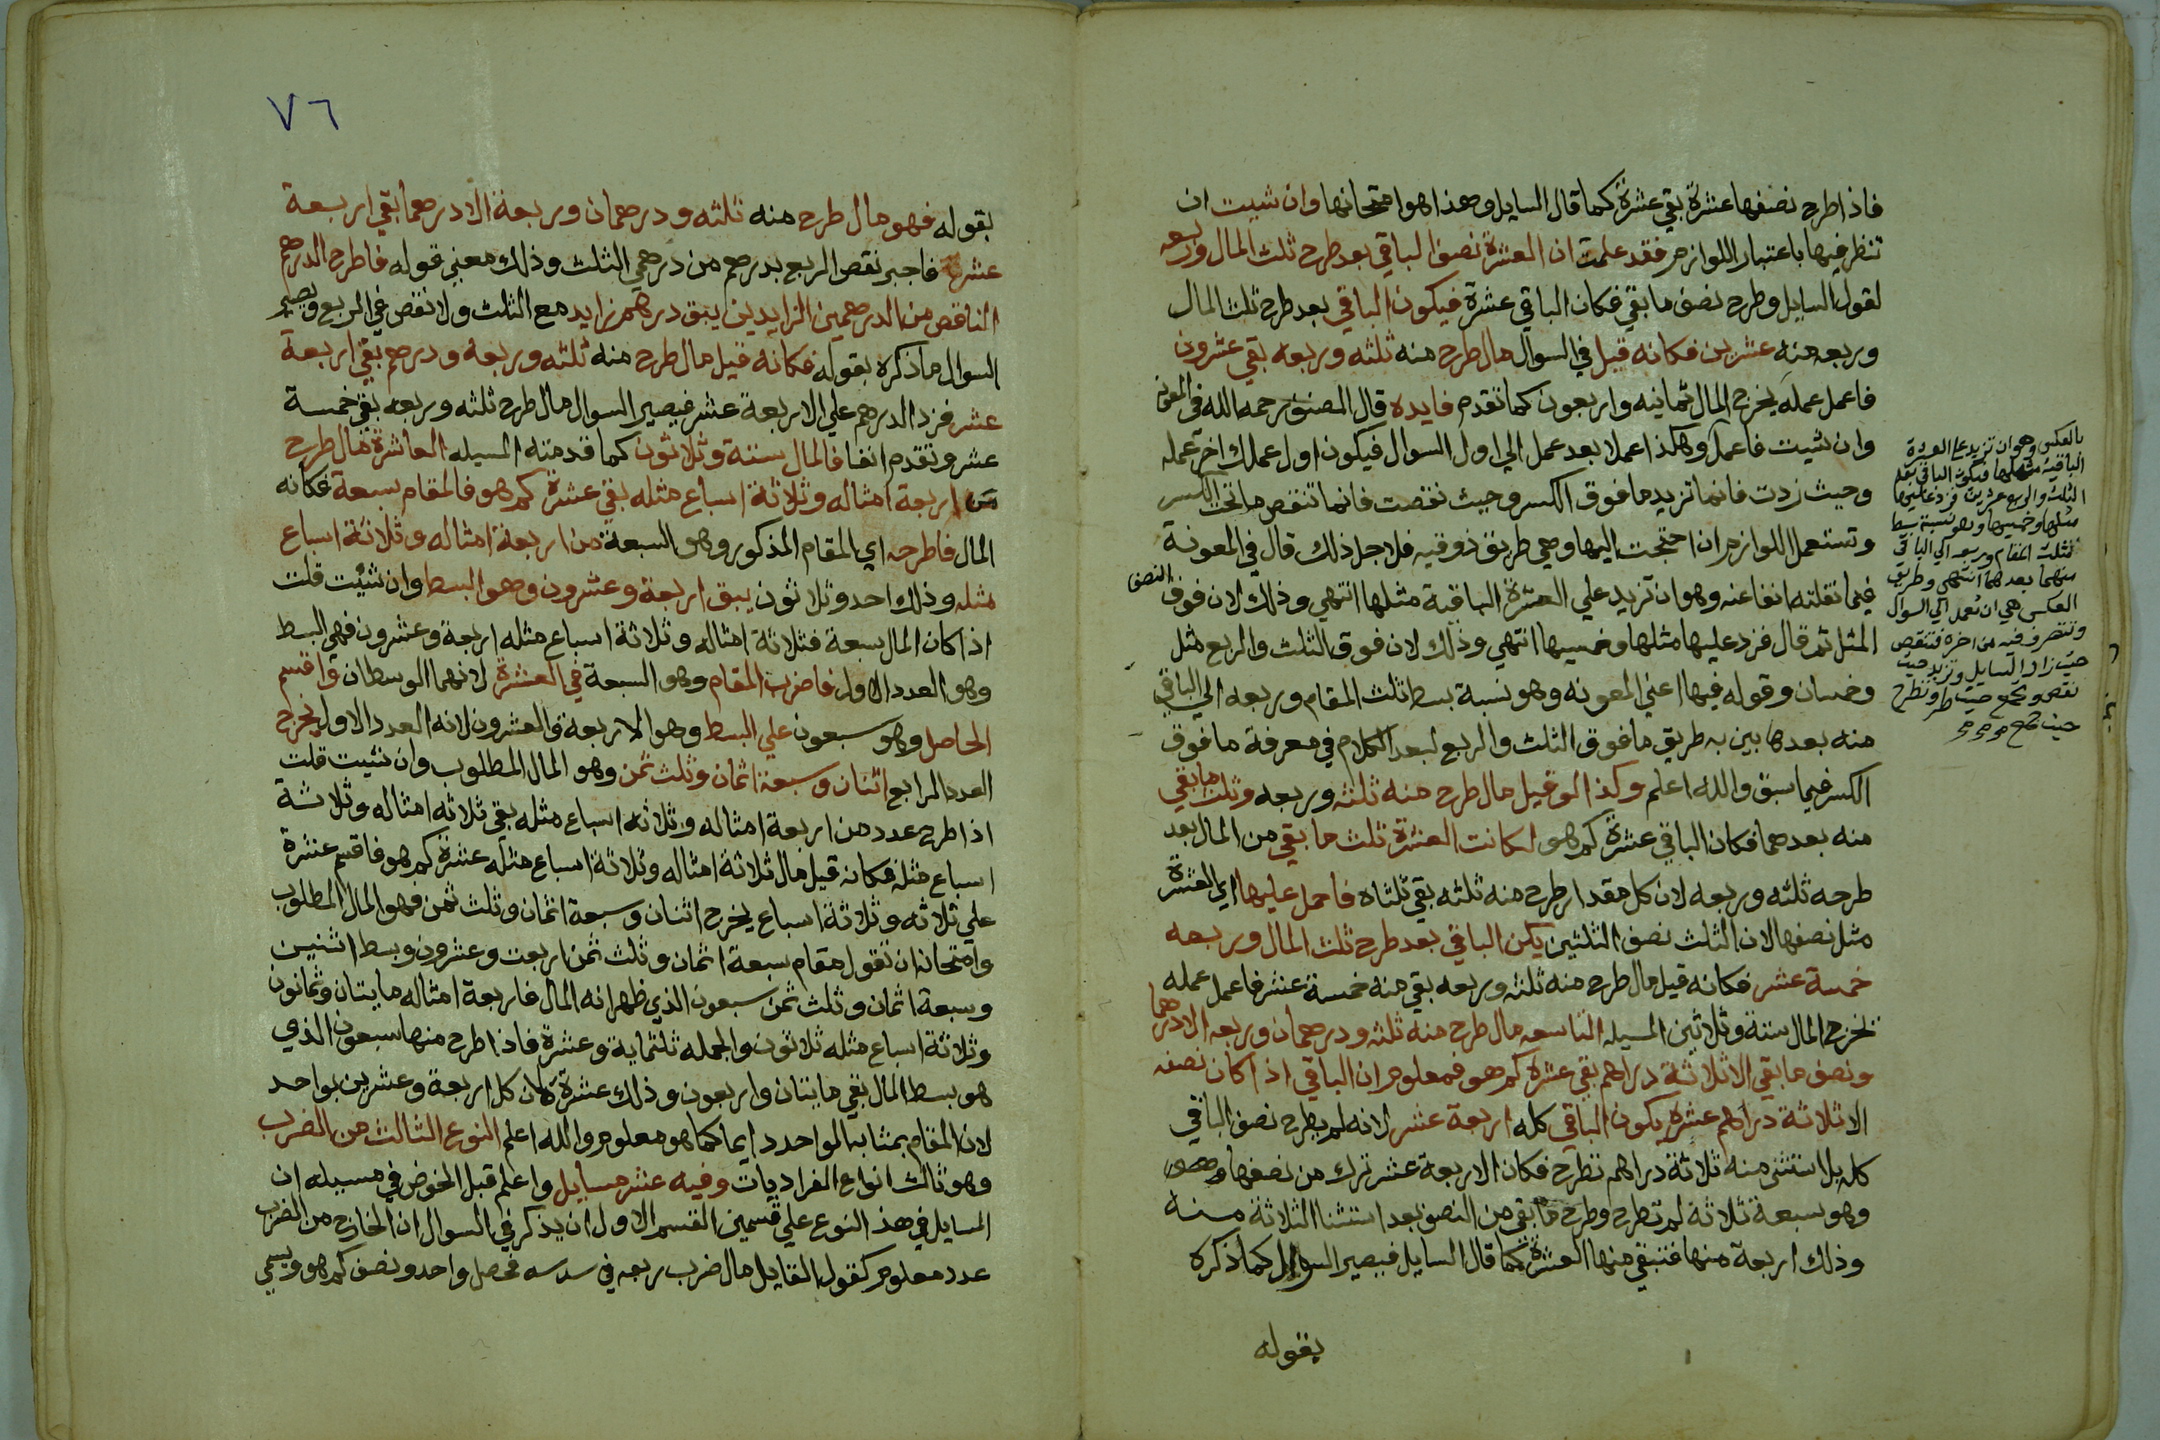 فاذا طرح نصفها عشرة بقي عشرة كما قال السايل وهذا هو امتحانها وان شيت ان
تنظر فيها باعتبار اللوازم فقد علمت ان العشرة نصف الباقي بعد طرح ثلث المال وربعه
لقول السايل وطرح نصف ما بقي فكان الباقي عشرة فيكون الباقي بعد طرح ثلث المال
وربعه منه عشرين فكانه قيل في السوال مال طرح منه ثلثه وربعه بقي عشرون
فاعمل عمله يخرج المال ثمانيه واربعون كما تقدم فايده قال المصنف رحمه الله في المعونة
وان شيت فاعمل وهكذا عملا بعد عمل الي اول السوال فيكون اول عملك اخر عمله
وحيث زدت فانما تزيد ما فوق الكسر وحيث نقصت فانما تنقص ما تحت الكسر
وتستعمل اللوازم ان احتجت اليها وهي طريق ذوقيه فلاجل ذلك قال في المعونة
فيما نقلته انفا عنه وهو ان تزيد علي العشرة الباقية مثلها انتهي وذلك لان فوق النصف
المثل ثم قال فزد عليها مثلها وخمسيها انتهي وذلك لان فوق الثلث والربع مثل
وخمسان وقوله فيها اعني المعونه وهو نسبة بسط ثلث المقام وربعه الي الباقي
منه بعدها بين به طريق ما فوق الثلث والربع لبعد الكلام في معرفة ما فوق
الكسر فيما سبق والله اعلم وكذا لو قيل مال طرح منه ثلثه وربعه وثلث ما بقي
منه بعدهما فكان الباقي عشرة كم هو لكانت العشرة ثلث ما بقي من المال بعد
طرحه ثلثه وربعه لان كل مقدار طرح منه ثلثه بقي ثلثاه فاحمل عليها اي العشرة
مثل نصفها لان الثلث نصف الثلثين يكن الباقي بعد طرح ثلث المال وربعه
خمسة عشر فكانه قيل مال طرح منه ثلثه وربعه بقي منه خمسة عشر فاعمل عمله
تخرج المال ستة وثلاثين المسيله التاسعه مال طرح منه ثلثه ودرهمان وربعه الا درهما
ونصف ما بقي الا ثلاثة دراهم بقي عشرة كم هو فمعلوم ان الباقي اذا كان نصفه
الا ثلاثة دراهم عشرة يكون الباقي كله اربعة عشر لانه لم يطرح نصف الباقي
كله بل استثني منه ثلاثة دراهم تطرح فكان الاربعة عشر ترك من نصفها
وهو سبعة ثلاثة لم تطرح وطرح ما بقي من النصف بعد استثنا الثلاثة منه
وذلك اربعة منها فتبقي منها العشرة كما قال السايل فيصير السوال كما ذكره
بقوله
بالعكس وهو ان تزيد علي العدة
الباقية مثلها فيكون الباقي بعد
الثلث والربع عشرين فزد عليها
مثلها وخمسيها وهو نسبة بسط
ثلث المقام وربعه الي الباقي
منهما بعدهما انتهي وطريق
العكس هي ان تعمل الي السوال
وتتصرف فيه من اخره فتنقص
حيث زاد السايل وتزيد حيث
نقص وتجمع حيث طرح وتطرح
حيث جمع
٧٦
بقوله فهو مال طرح منه ثلثه ودرهمان وربعة الا درهما بقي اربعة
عشرة فاجبر نقص الربع بدرهم من درهمي الثلث وذلك معني قوله فاطرح الدرهم
الناقص من الدرهمين الزايدين يبق درهم زايد مع الثلث ولا نقص في الربع ويصير
السوال ما ذكره بقوله فكانه قيل مال طرح منه ثلثه وربعه ودرهم بقي اربعة
عشر فزد الدرهم علي الاربعة عشر فيصير السوال مال طرح ثلثه وربعه بقي خمسة
عشر وتقدم انفا فالمال ستة وثلاثون كما قدمته المسيله العاشرة مال طرح
من اربعة امثاله وثلاثة اسباع مثله بقي عشرة كم هو فالمقام سبعة فكانه
المال فاطرحه اي المقام المذكور وهو السبعة من اربعة امثاله وثلاثة اسباع
مثله وذلك احد وثلاثون يبق اربعة وعشرون وهو البسط وان شيت قلت
اذا كان المال سبعة فثلاثة امثاله وثلاثة اسباع مثله اربعة وعشرون فهي البسط
وهو العدد الاول فاضرب المقام وهو السبعة في العشرة لانهما الوسطان واقسم
الحاصل وهو سبعون علي البسط وهو الاربعة والعشرون لانه العدد الاول يخرج
العدد الرابع اثنان وسبعة اثمان وثلث ثمن وهو المال المطلوب وان شيت قلت
اذا طرح عدد من اربعة امثاله وثلاثه اسباع مثله بقي ثلاثه امثاله وثلاثة
اسباع مثله فكانه قيل مال ثلاثة امثاله وثلاثة اسباع مثله عشرة كم هو فاقسم عشرة
علي ثلاثه وثلاثة اسباع يخرج اثنان وسبعة اثمان وثلث ثمن فهو المال المطلوب
وامتحانه ان تقول مقام سبعة اثمان وثلث ثمن اربعت وعشرون وبسط اثنين
وسبعة اثمان وثلث ثمن سبعون الذي ظهر انه المال فاربعة امثاله مايتان وثمانون
وثلاثة اسباع مثله ثلاثون والجمله ثلثماية وعشرة فاذا طرح منها سبعون الذي
هو بسط المال بقي مايتان واربعون وذلك عشرة لان كل اربعة وعشرين بواحد
لان المقام بمثابه الواحد دايما كما هو معلوم والله اعلم النوع الثالث من الضرب
وهو ثالث انواع الفراديات وفيه عشر مسايل واعلم قبل الخوض في مسيله ان
المسايل في هذا النوع علي قسمين القسم الاول ان يذكر في السوال ان الخارج من الضرب
عدد معلوم كقول القايل مال ضرب ربعه في سدسه فحصل واحد ونصف كم هو ويسمي